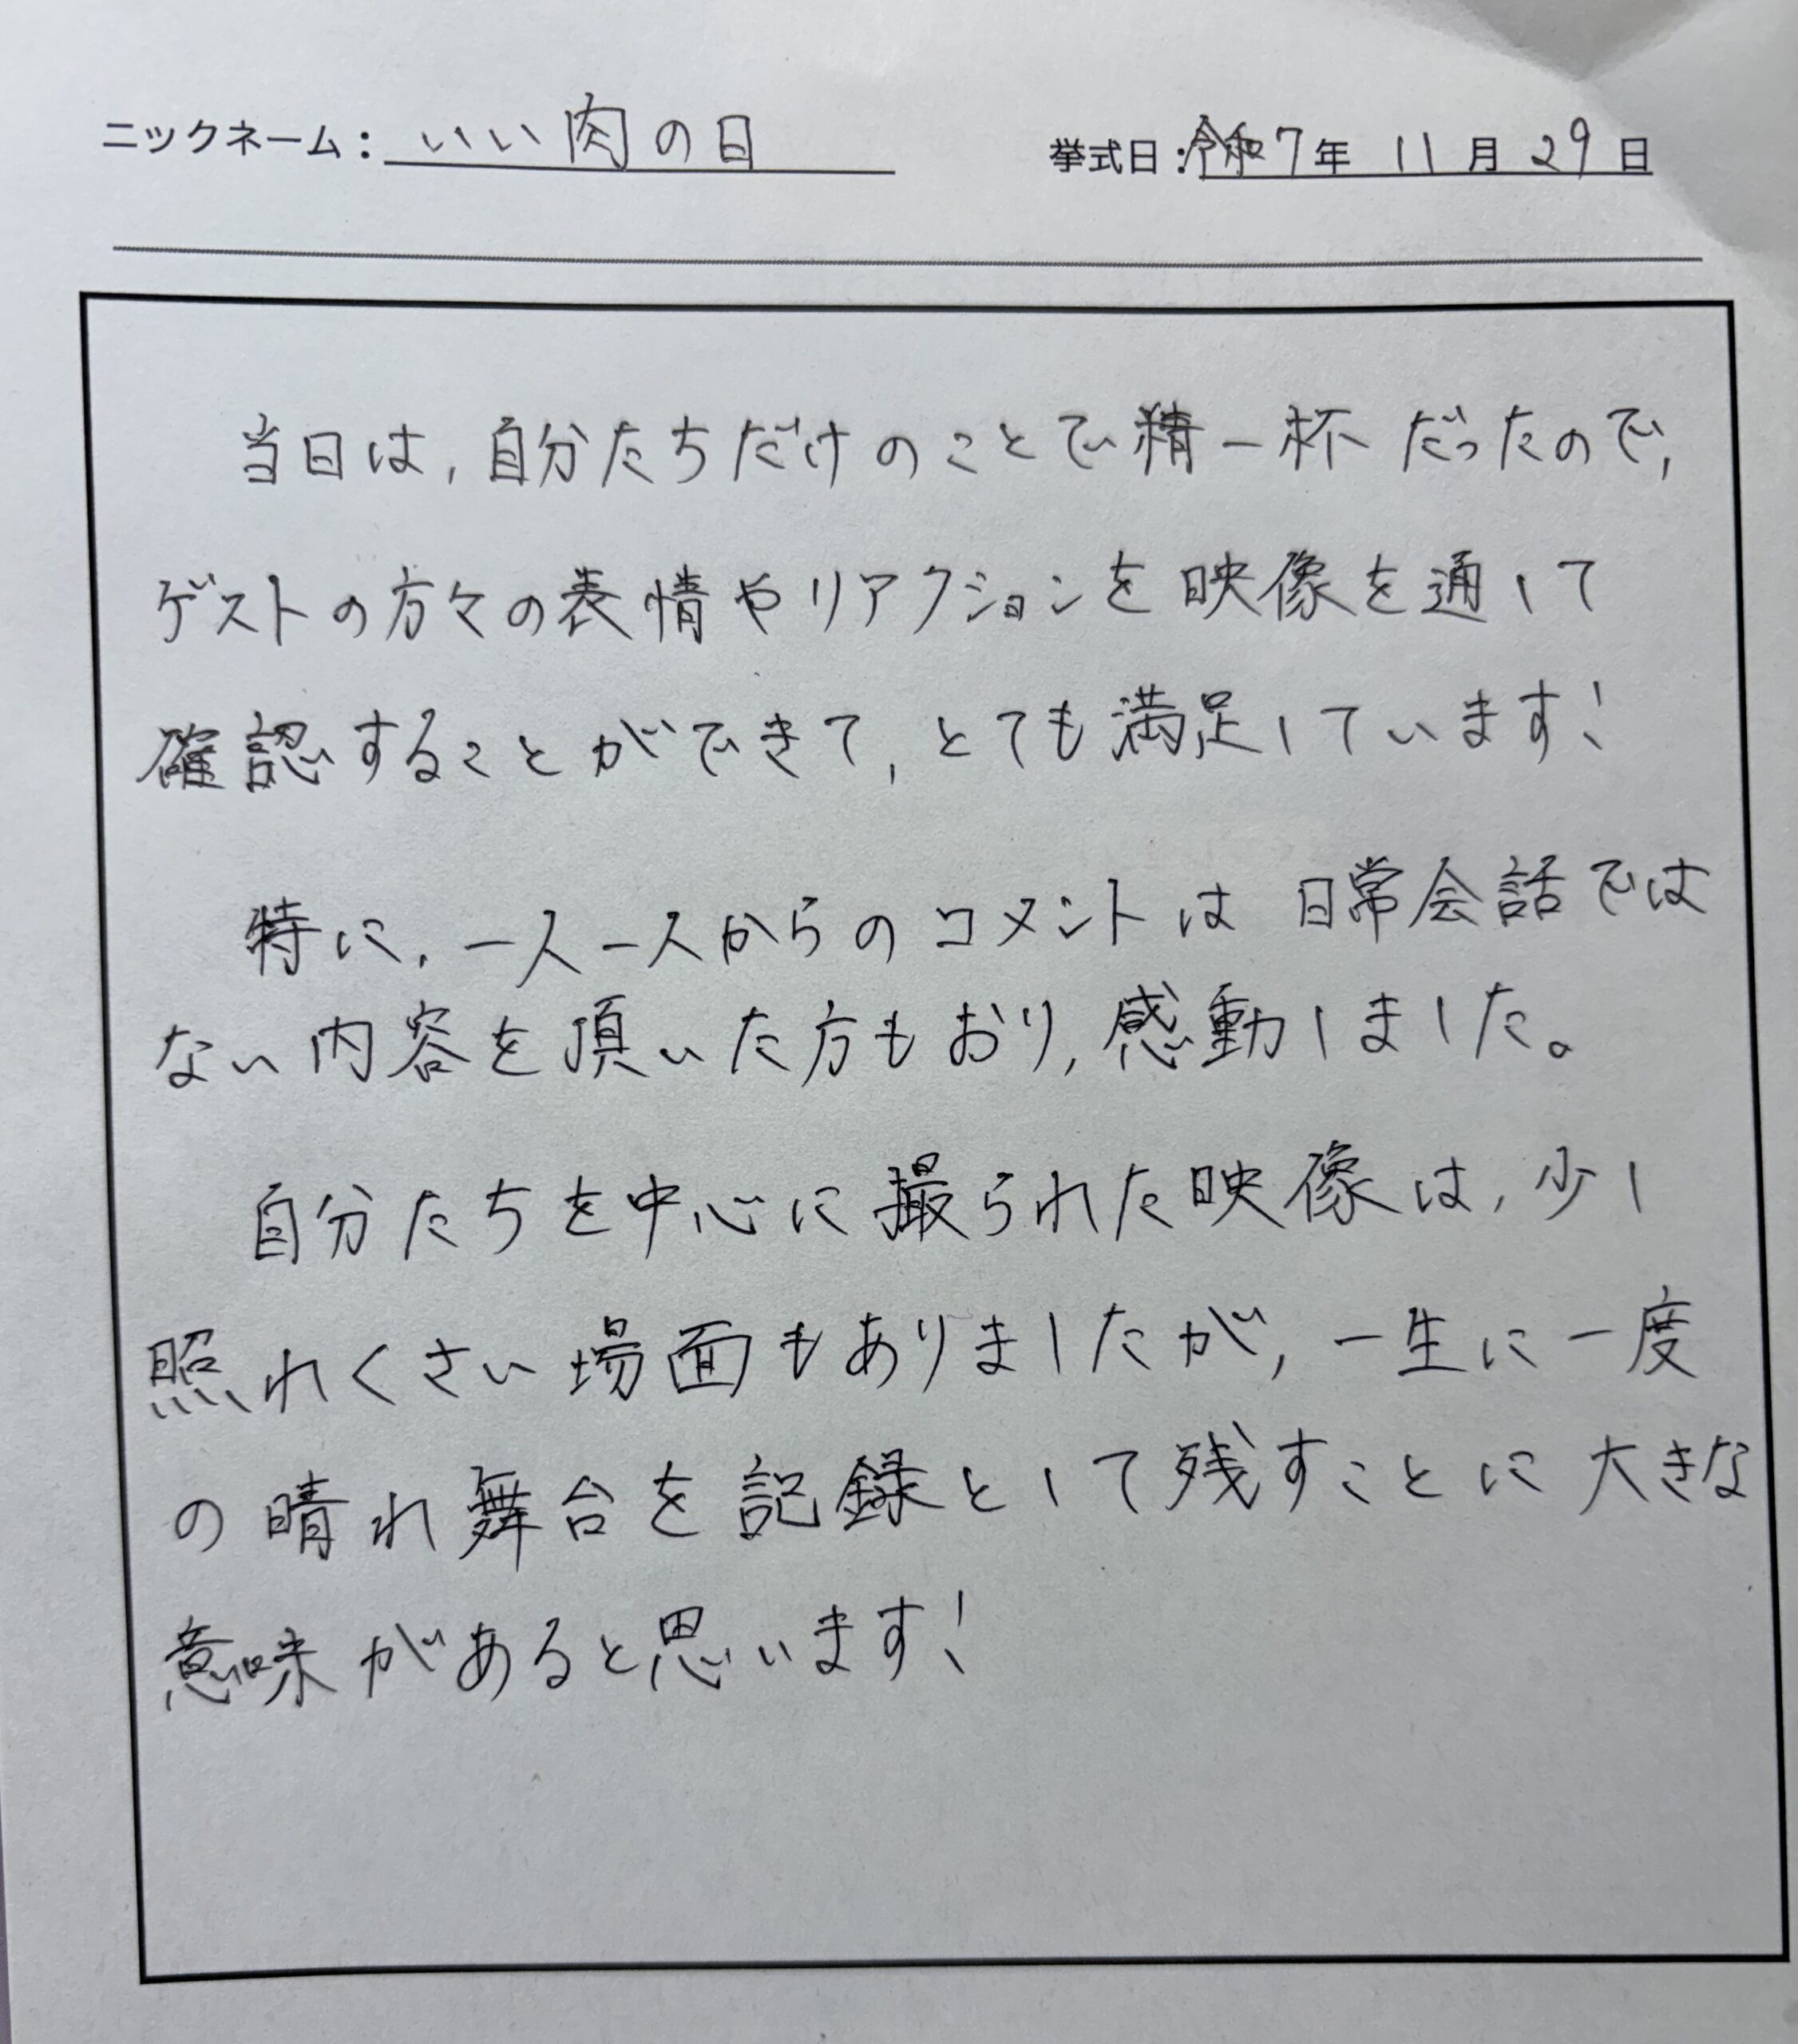 ニックネーム：いい肉の日
挙式日：令和7年 11月 29日
当日は,自分たちだけのことで精一杯だったので,
ゲストの方々の表情やリアクションを映像を通して
確認することができて,とても満足しています!
特に,一人一人からのコメントは日常会話では
ない内容を頂いた方もおり,感動しました。
自分たちを中心に撮られた映像は,少し
照れくさい場面もありましたが,一生に一度
の晴れ舞台を記録として残すことに大きな
意味があると思います!